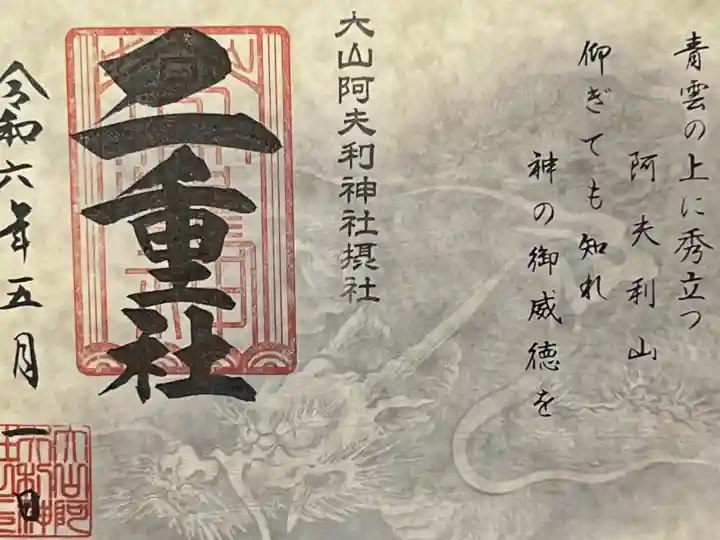 青雲の上に秀立つ
阿夫利山
仰ぎても知れ
神の御威徳を
大山阿夫利神社摂社
二重社
令和六年五月一日